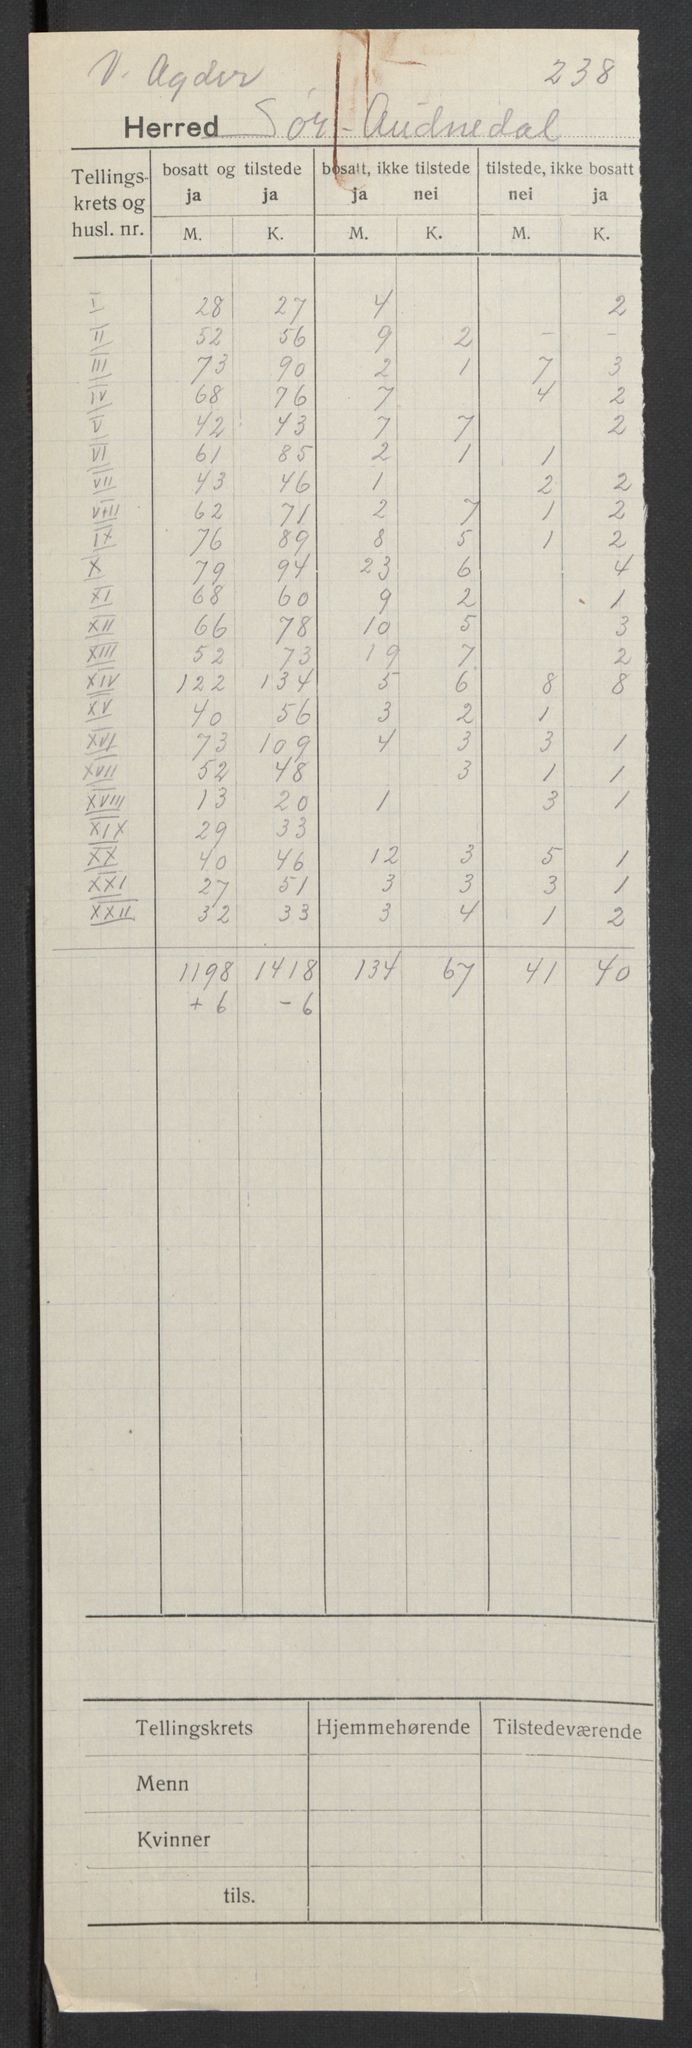 V. Agder 238
Herred Sør-Audnedal
Tellings- krets og husl. nr. | bosatt og tilstede ja ja | bosatt, ikke tilstede ja nei | tilstede, ikke bosatt nei ja
M. K. M. K. M. K.
I 28 27 4 2
II 52 56 9 2 - -
III 73 90 2 1 7 3
IV 68 76 7 4 2
V 42 43 7 7 2
VI 61 85 2 1 1
VII 43 46 1 2 2
VIII 62 71 2 7 1 2
IX 76 89 8 5 1 2
X 79 94 23 6 4
XI 68 60 9 2 1
XII 66 78 10 5 3
XIII 52 73 19 7 2
XIV 122 134 5 6 8 8
XV 40 56 3 2 1
XVI 73 109 4 3 3 1
XVII 52 48 3 1 1
XVIII 13 20 1 3 1
XIX 29 33
XX 40 46 12 3 5 1
XXI 27 51 3 3 3 1
XXII 32 33 3 4 1 2
1198 1418 134 67 41 40
+ 6 - 6
Tellingskrets Hjemmehørende Tilstedeværende
Menn
Kvinner
tils.